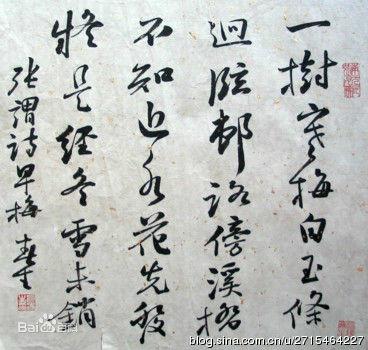 一樹寒梅白玉條
迥臨邨路傍溪橋
不知近水花先發
疑是經冬雪未銷
張謂詩早梅
Bai百科
blog.sina.com.cn/u/2715464227